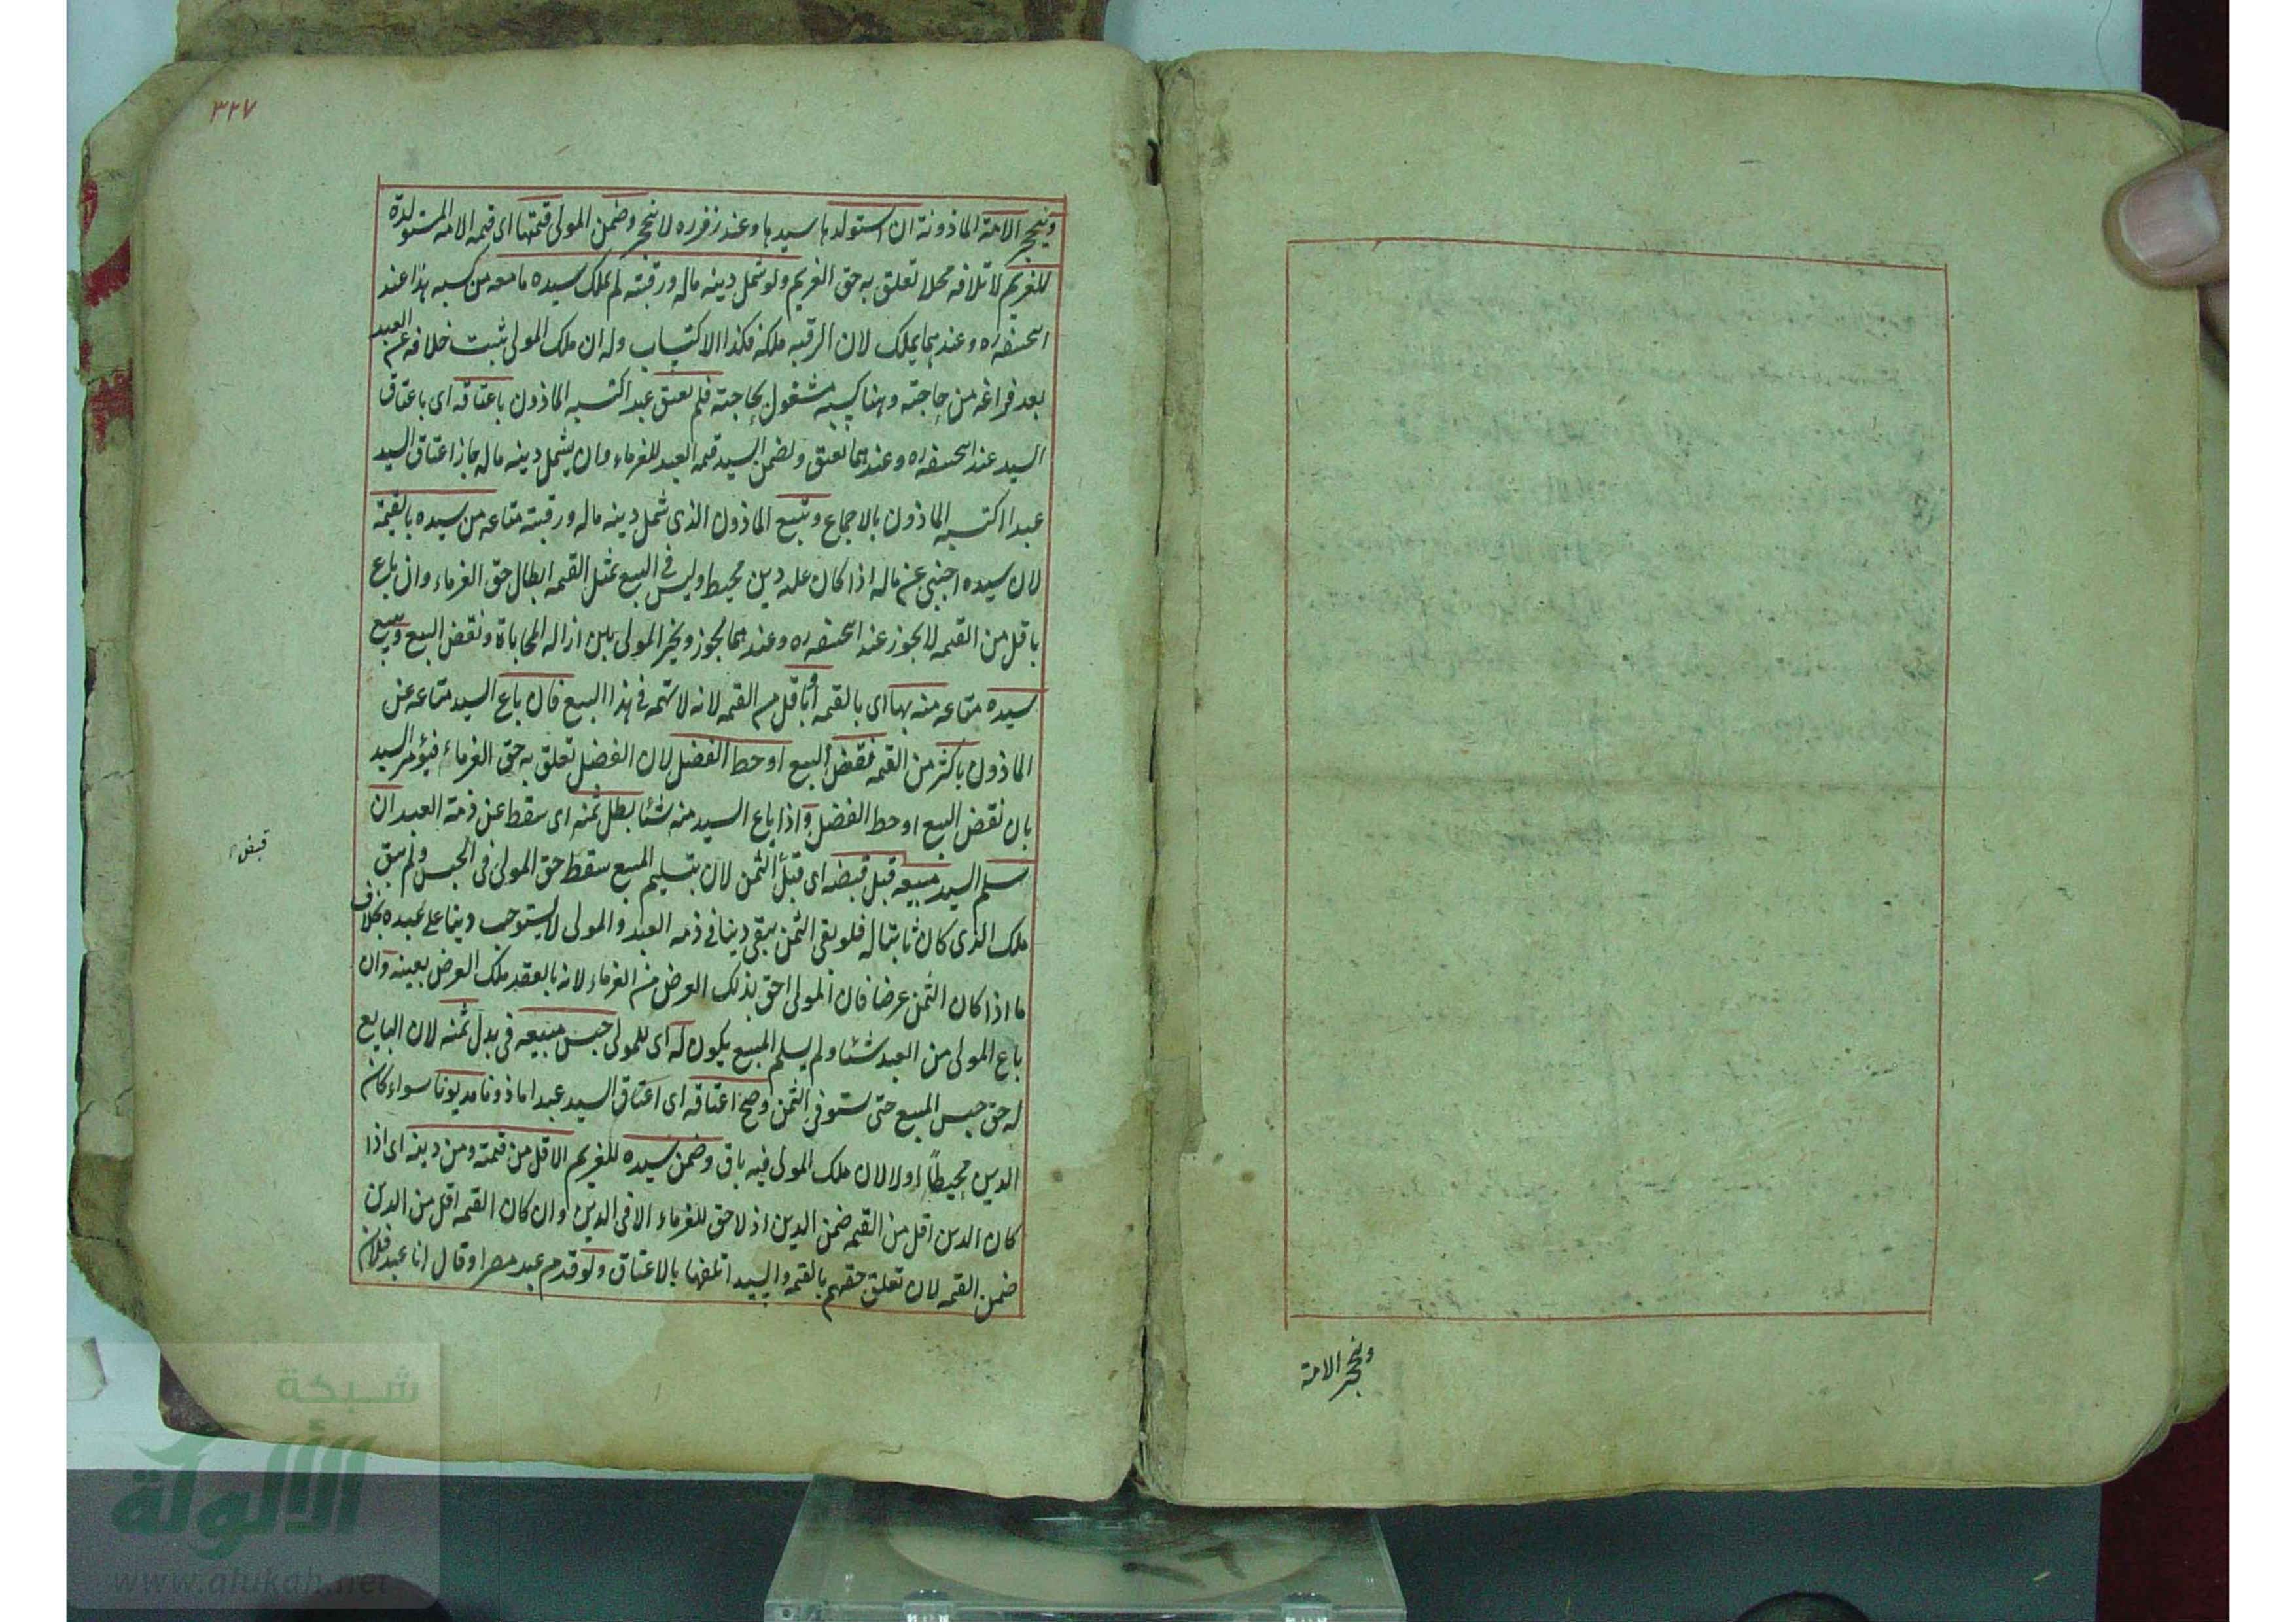 وينحجر الامة
٣٢٧
وينحجر الامة الماذونة ان استولدها سيدها وعند زفر ره لا ينحجر وضمن المولى قيمتها اى قيمه الامه المستولدة
للغريم لاتلافه محلا تعلق به حق الغريم ولو شمل دينه ماله ورقبته لم يملك سيده ما معه من كسبه هذا عند
ابيحنيفه ره وعندهما يملك لان الرقبه ملكه فكذا الاكتساب وله ان ملك المولى يثبت خلافه عن العبد
بعد فراغه من حاجته وهنا كسبه مشغول بحاجته فلم يعتق عبد اكتسبه الماذون باعتاقه اى باعتاق
السيد عند ابيحنيفه ره وعندهما يعتق ويضمن السيد قيمه العبد للغرماء وان يشمل دينه ماله جاز اعتاق السيد
عبدا اكتسبه الماذون بالاجماع ويبيع الماذون الذى شمل دينه ماله ورقبته متاعه من سيده بالقيمة
لان سيده اجنبى عن ماله اذا كان عليه دين محيط وليس فى البيع بمثل القيمه ابطال حق الغرماء وان باع
باقل من القيمه لا يجوز عند ابيحنيفه ره وعندهما يجوز ويخير المولى بين ازاله المحاباة ونقض البيع ويبيع
سيده متاعه منه بها اى بالقيمه او باقل من القيمه لانه لا تهمه فى هذا البيع فان باع السيد متاعه عن
الماذون باكثر من القيمه نقض البيع او حط الفضل لان الفضل تعلق به حق الغرماء فيؤمر السيد
بان نقض البيع او حط الفضل واذا باع السيد منه شئا بطل ثمنه اى سقط عن ذمة العبد ان
سلم السيد مبيعه قبل قبضه اى قبل الثمن لان بتسليم المبيع سقط حق المولى فى الحبس ولم يبق
قبض
ملك الذى كان ثابتا له فلو بقى الثمن يبقى دينا فى ذمه العبد والمولى لا يستوجب دينا على عبده بخلاف
ما اذا كان الثمن عرضا فان المولى احق بذلك العرض من الغرماء لانه بالعقد ملك العرض بعينه وان
باع المولى من العبد شئا ولم يسلم المبيع يكون له اى للمولى حبس مبيعه فى بدل ثمنه لان البايع
له حق حبس المبيع حتى يستوفى الثمن وصح اعتاقه اى اعتاق السيد عبدا ماذونا مديونا سواء كان
الدين محيطاً او لا لان ملك المولى فيه باق وضمن سيده للغريم الاقل من قيمته ومن دينه اى اذا
كان الدين اقل من القيمه ضمن الدين اذ لا حق للغرماء الا فى الدين وان كان القيمه اقل من الدين
ضمن القيمه لان تعلق حقهم بالقيمه والسيد اتلفها بالاعتاق ولو قدم عبد مصرا وقال انا عبد فلان
شبكة
الألوكة
www.alukah.net